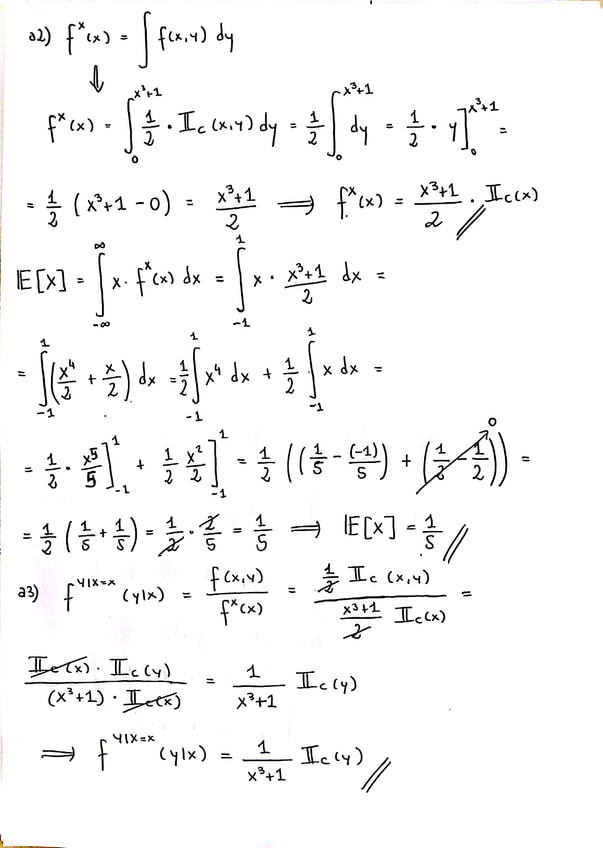 a2) f^x(x) = ∫ f(x,y) dy
⇓
f^x(x) = ∫_0^{x³+1} 1/2 · 𝕀_C(x,y) dy = 1/2 ∫_0^{x³+1} dy = 1/2 · y]_0^{x³+1} =
= 1/2 (x³+1 - 0) = (x³+1)/2 ⟹ f^x(x) = (x³+1)/2 · 𝕀_C(x) //
𝔼[x] = ∫_{-∞}^{∞} x · f^x(x) dx = ∫_{-1}^{1} x · (x³+1)/2 dx =
= ∫_{-1}^{1} (x⁴/2 + x/2) dx = 1/2 ∫_{-1}^{1} x⁴ dx + 1/2 ∫_{-1}^{1} x dx =
= 1/2 · x⁵/5]_{-1}^{1} + 1/2 x²/2]_{-1}^{1} = 1/2 ((1/5 - (-1)/5) + (1/2 - 1/2)) → 0 =
= 1/2 (1/5 + 1/5) = 1/2 · 2/5 = 1/5 ⟹ 𝔼[x] = 1/5 //
a3) f^{Y|X=x} (y|x) = f(x,y)/f^x(x) = (1/2 𝕀_C (x,y))/((x³+1)/2 𝕀_C(x)) =
(𝕀_C(x) · 𝕀_C(y))/((x³+1) · 𝕀_C(x)) = 1/(x³+1) 𝕀_C(y)
⟹ f^{Y|X=x} (y|x) = 1/(x³+1) 𝕀_C(y) //